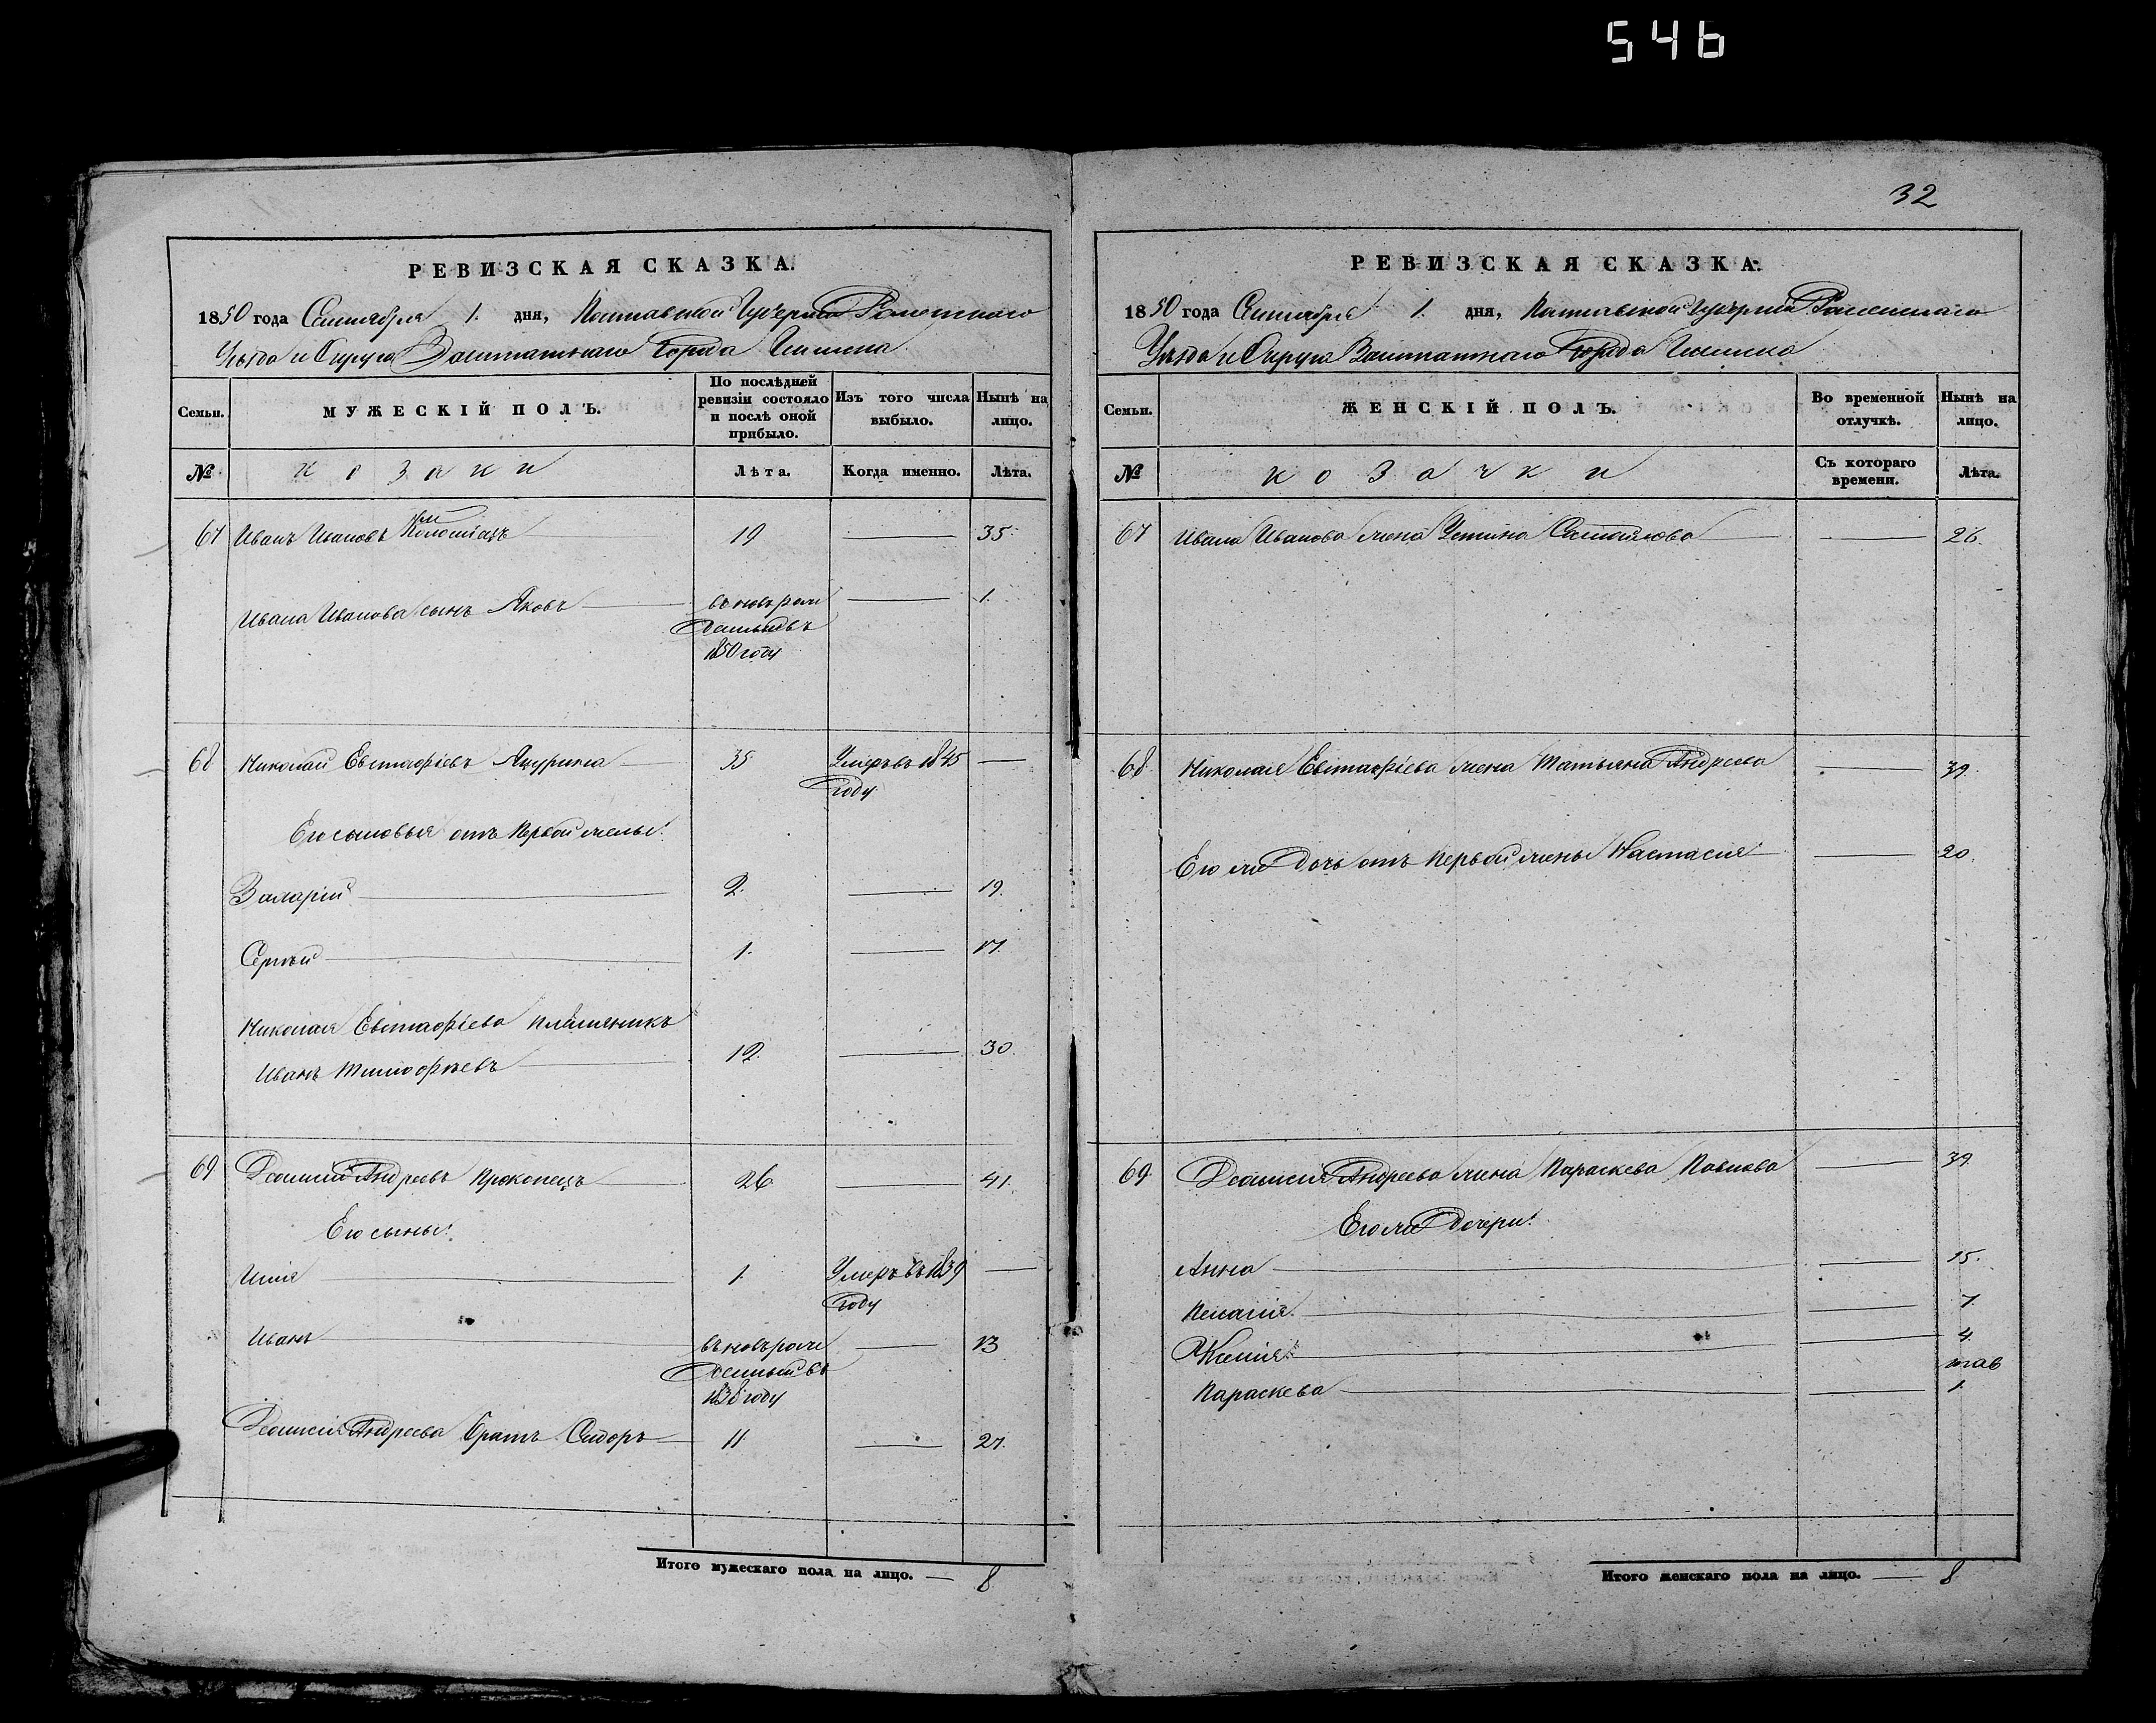 546
32
РЕВИЗСКАЯ СКАЗКА.
1850 года Сентября 1. дня, Полтавской Губерніи Роменского
Уѣзда и Округа Заштатнаго Города Глинска
Семьи.
МУЖЕСКІЙ ПОЛЪ.
По послѣдней ревизіи состояло и послѣ оной прибыло.
Изъ того числа выбыло.
Нынѣ на лицо.
№ козаки Лѣта. Когда именно. Лѣта.
67 Иванъ Ивановъ 19 — 35.
Ивана Иванова сынъ Яковъ — въ новѣ рож — 1.
денный въ
1850 году
68 Николай Евстафіевъ Яцурина — 35 Умеръ въ 1845 —
году
Его сыновья отъ первой жены:
Валерій — 2. — 19.
Сергѣй — 1. — 17.
Николая Евстафіева племяникъ
Иванъ Тимофѣевъ — 12. — 30.
69 Андреевъ — 26 — 41.
Его сыны:
Илія — 1. Умеръ въ 1839 —
году
Иванъ — въ новѣ рож — 13
денный въ
1838 году
Андреева братъ Сидоръ — 11 — 27.
Итого мужескаго пола на лицо. — 8
РЕВИЗСКАЯ СКАЗКА.
1850 года Сентября 1. дня, Полтавской Губерніи Роменскаго
Уѣзда и Округа Заштатнаго Города Глинска
Семьи.
ЖЕНСКІЙ ПОЛЪ.
Во временной отлучкѣ.
Нынѣ на лицо.
№ козачки Съ котораго времени. Лѣта.
67 Ивана Иванова жена Устина Самойлова — 26.
68. Николая Евстафіева жена Татьяна Андреева — 39.
Его же дочь отъ первой жены Настасия — 20.
69. Андреева жена Параскева Павлова — 39.
Его же дочери:
Анна — 15.
Пелагія — 7.
Ксенія — 4.
Параскева — 1.
Итого женскаго пола на лицо. — 8